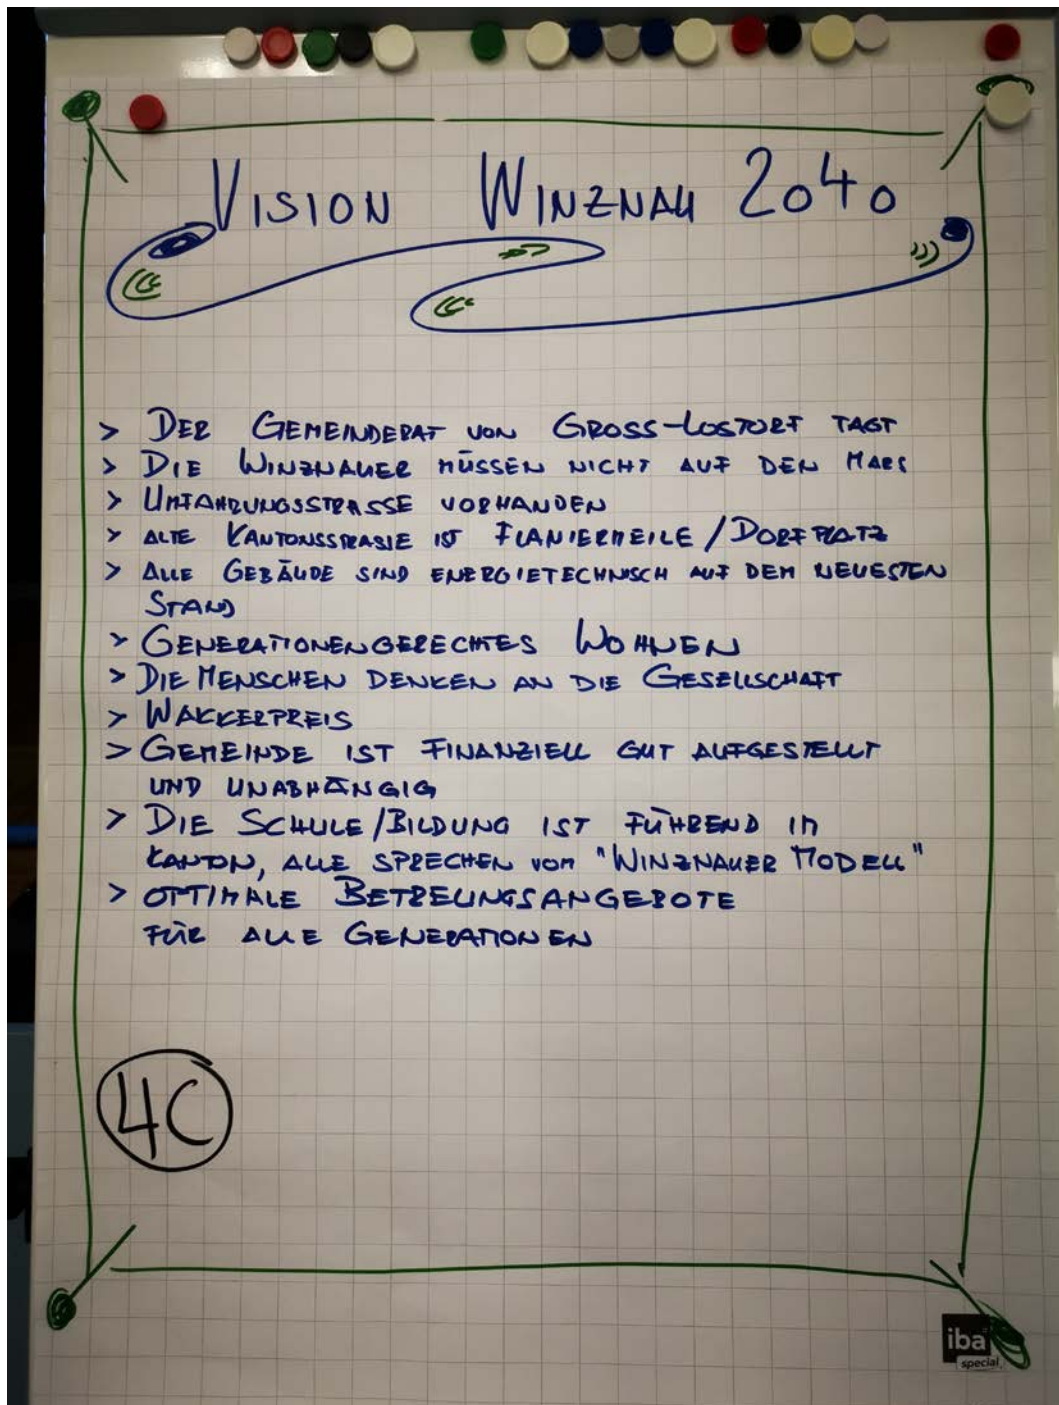 VISION WINZNAU 2040
> DER GEMEINDERAT VON GROSS-LOSTORF TAGT
> DIE WINZNAUER MÜSSEN NICHT AUF DEN MARS
> UMFAHRUNGSSTRASSE VORHANDEN
> ALTE KANTONSSTRASSE IST FLANIERMEILE/DORFPLATZ
> ALLE GEBÄUDE SIND ENERGIETECHNISCH AUF DEM NEUESTEN
STAND
> GENERATIONENGERECHTES WOHNEN
> DIE MENSCHEN DENKEN AN DIE GESELLSCHAFT
> WAKKERPREIS
> GEMEINDE IST FINANZIELL GUT AUFGESTELLT
UND UNABHÄNGIG
> DIE SCHULE/BILDUNG IST FÜHREND IM
KANTON, ALLE SPRECHEN VOM "WINZNAUER MODELL"
> OPTIMALE BETREUNGSANGEBOTE
FÜR ALLE GENERATIONEN
4C
iba
special